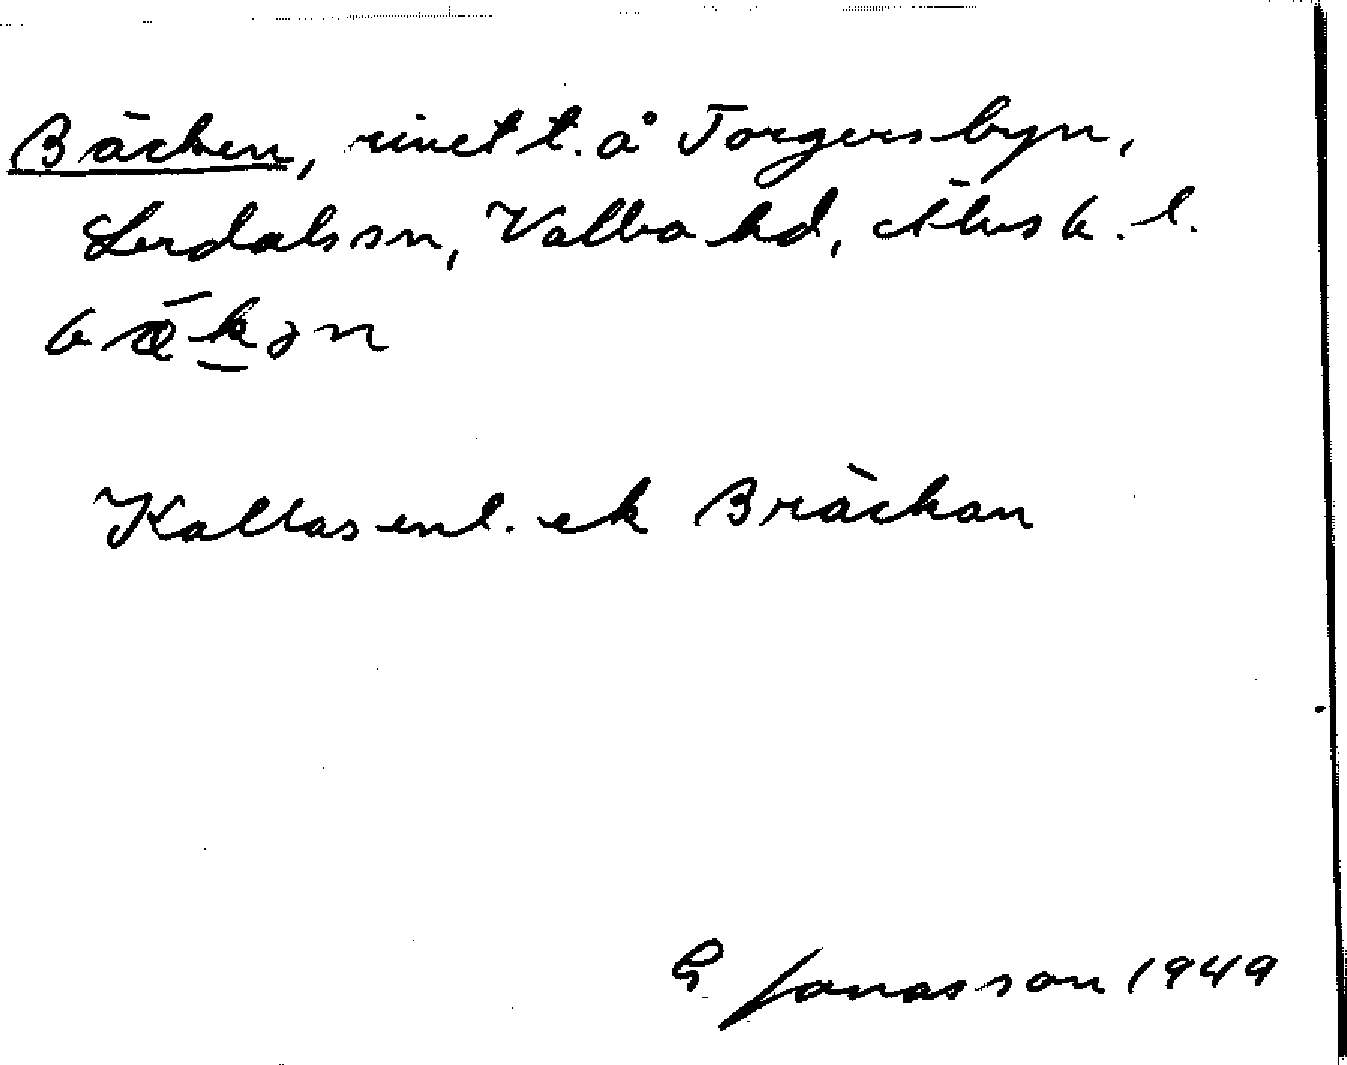 Bäcken, rinet t. å Torgersbyn,
Lerdals sn, Valbo hd, Älvsb. l.
bäkən
Kallas enl. ek Bräckan
G Jonasson 1949